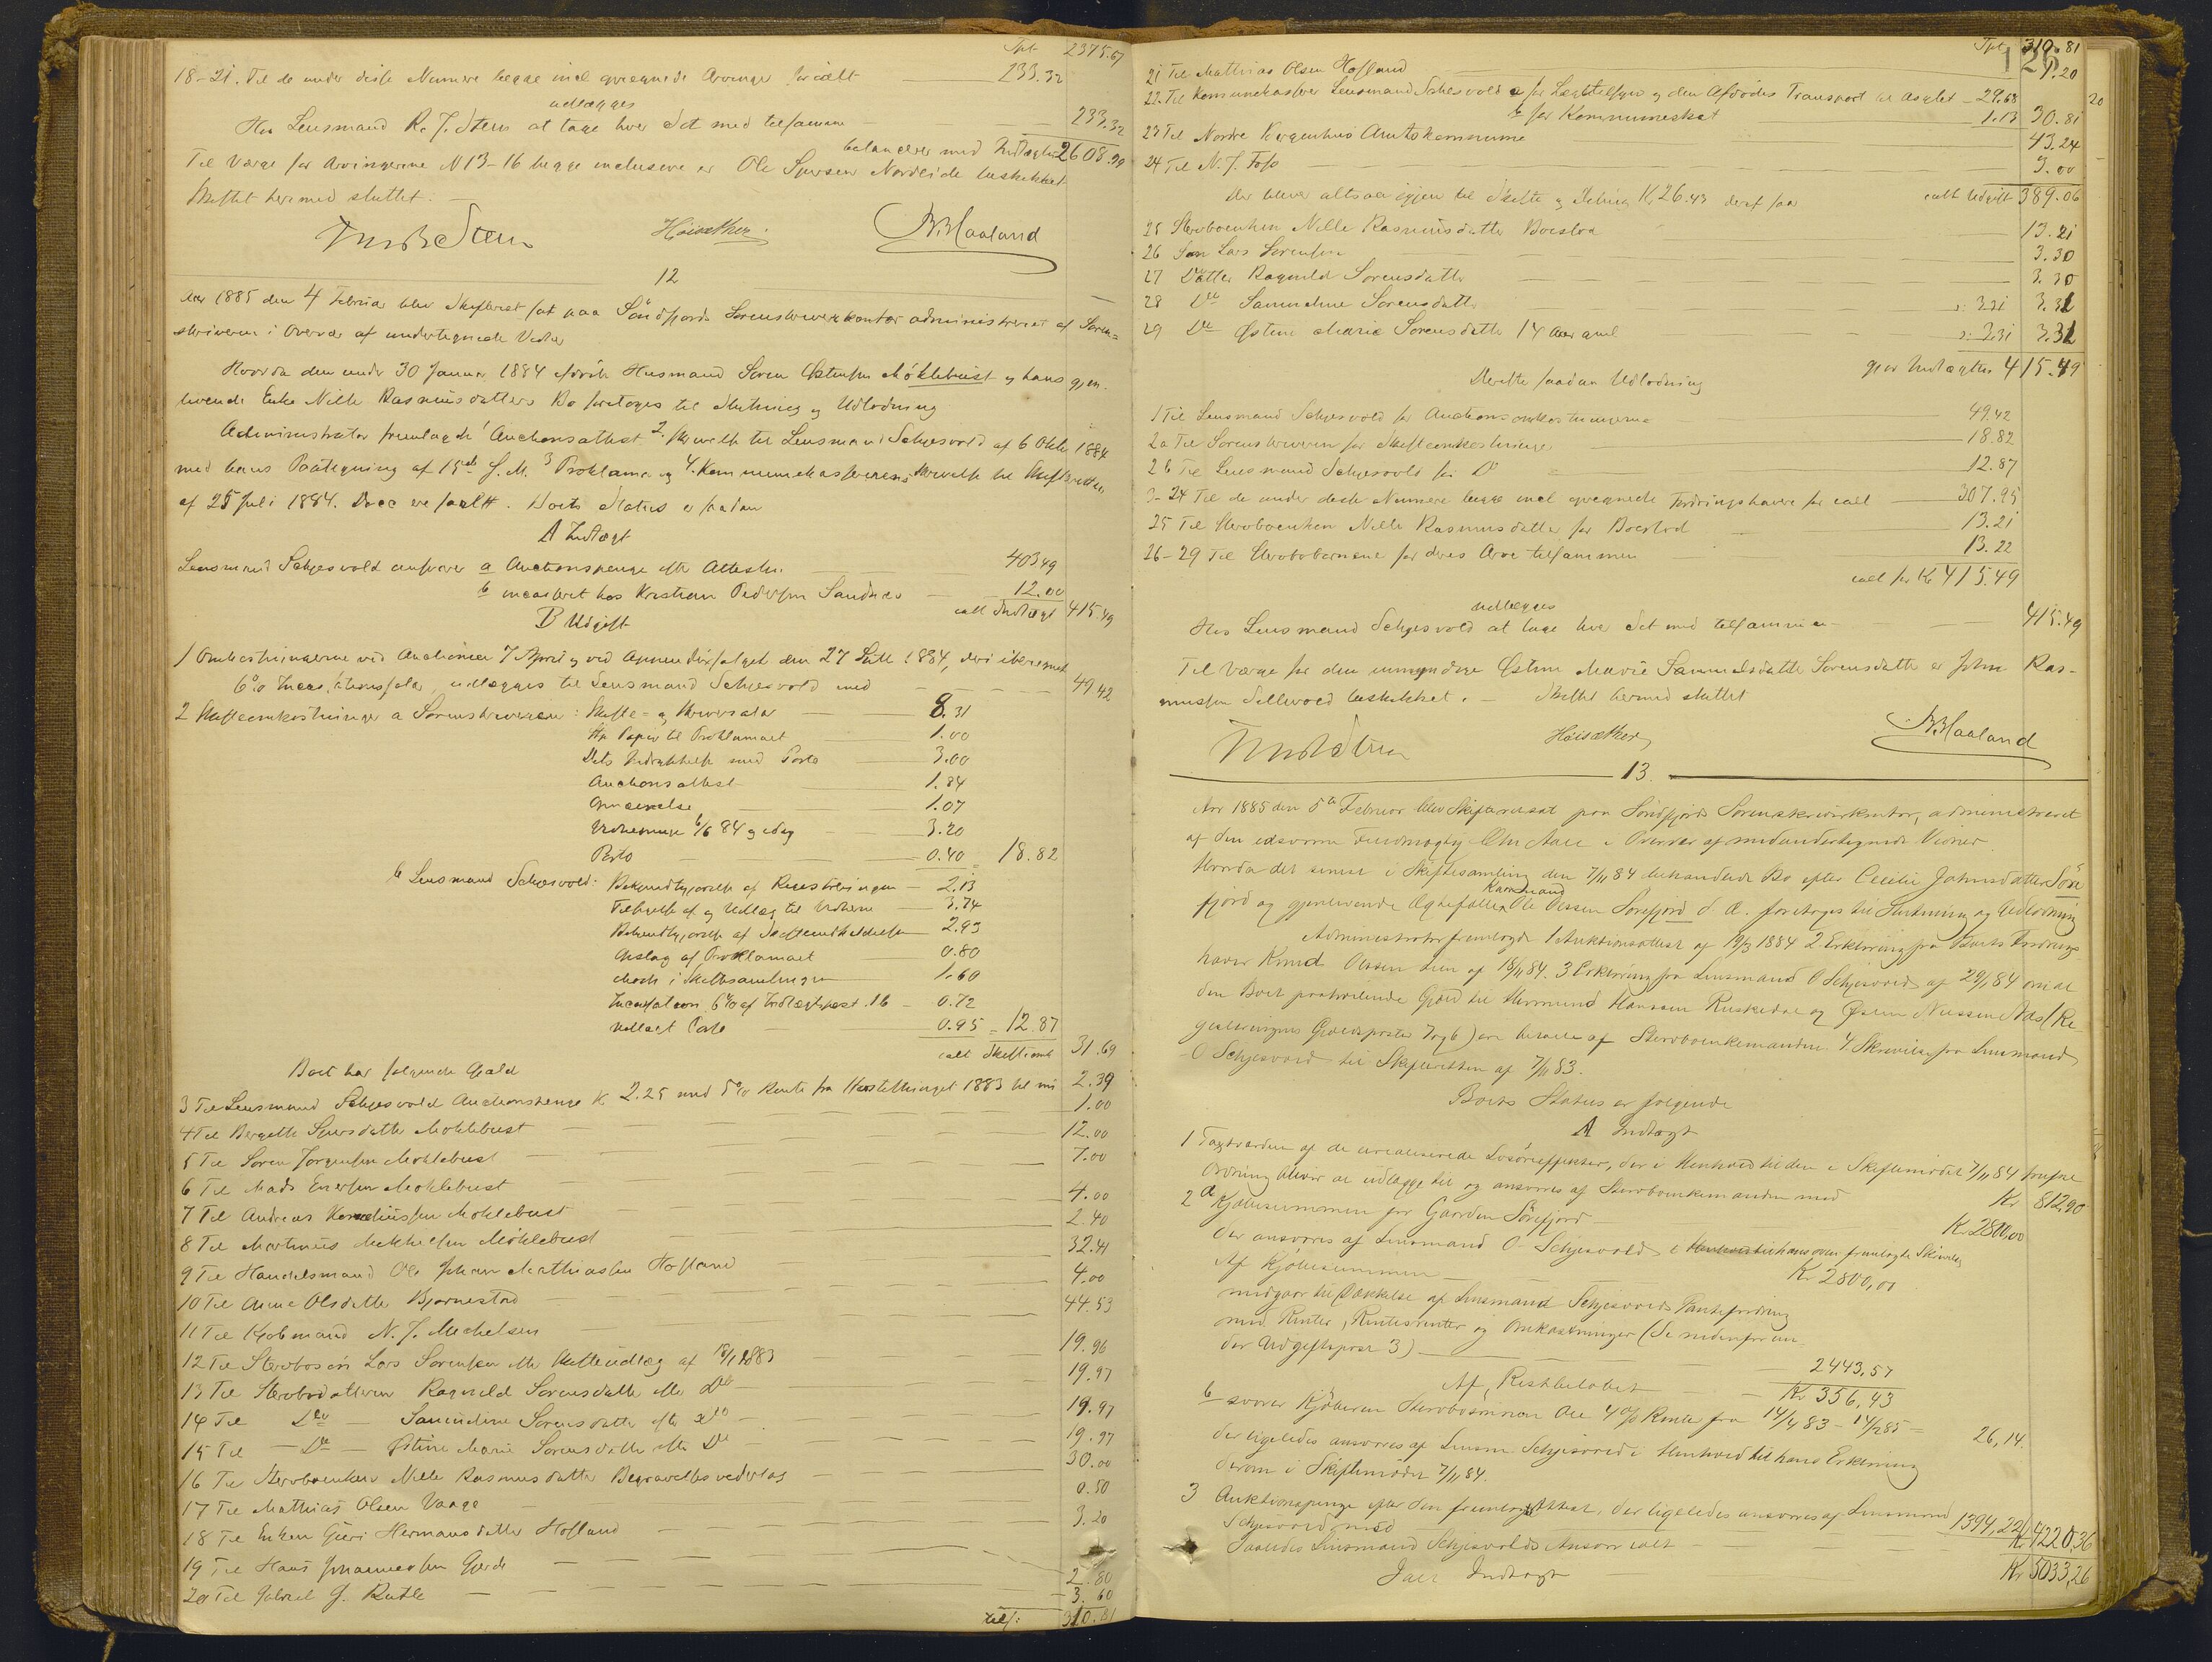 Tpt. 2375.67
18-21. Til de under disse Numere begge incl. opregnede Arvinger for ialt — 233.32
udlægges
Hos Lensmand R. J. Steen at tage hver Det med tilsammen — 233.32
balancerer med Indtægten 2608.99
Til Værge for Arvingerne N 13-16 begge inclusive er Ole Sjursen Nordeide beskikket
Skiftet hermed sluttet. —
Høisæther. N. Haaland
12
Aar 1885 den 4 Februar blev Skifteret sat paa Söndfjords Sorenskriverkontor administreret af Soren=
skriveren i Overvær af undertegnede Vidner
Hvorda den under 30 Januar 1884 afdöde Husmand Sören Östensen Möklebust og hans gjen-
levende Enke Nille Rasmusdatters Bo foretoges til Slutning og Udlodning
Administrator fremlagde 1 Auctionsattest 2. Skrivelse til Lensmand Schjesvold af 6 Oktbr 1884
med hans Paategning af 15de s. M. 3 Proklama og 4. Kommunekassererens Skrivelse til Skifteretten
af 25 Juli 1884. Boets Status er saadan
A Indtægt
Lensmand Schjesvold ansvarer a Auctionspenge efter Attesten — 403.49
b incasseret hos Kristian Pedersen Sandnes — 12.00
ialt Indtægt 415.49
B Udgift
1 Omkostningerne ved Auctionen 7 April og ved Appendixsalget den 27 1884, deri iberegnet
6% Incassationssalær, udlægges til Lensmand Schjesvold med — 49.42
2 Skifteomkostninger a Sorenskriveren: Skifte- og Skriversalær — 8.31
Stp Papir til Proklamaet — 1.00
Dets Indrykkelse med Porto — 3.00
Auctionsattest 1.84
Opnævnelse 1.07
Vidnepenge 6/6 84 og idag — 3.20
Porto — 0.40 = 18.82
b Lensmand Schjesvold: Bekjendtgjørelse af Registreringen — 2.13
Tilsigelse af og Udlæg til Vidnerne — 3.74
Bekjendtgjørelse af — 2.93
Opslag af Proklamaet 0.80
Möde i Skiftesamlingen 1.60
Incassation 6% af Indtægtspost 1b — 0.72
Udlagt Porto — 0.95 = 12.87
ialt Skifteomk. 31.69
Boet har følgende Gjæld
3 Til Lensmand Schjesvold Auctionspenge K 2.25 med 5% Rente fra Høsttinget 1883 til nu 2.39
4 Til Bergette Sjursdatter Moklebust — 1.00
5 Til Soren Jorgensen Moklebust — 12.00
6 Til Mads Enersen Moklebust — 7.00
7 Til Andreas Korneliussen Moklebust — 4.00
8 Til Martinus Mikkelsen Möklebust — 2.40
9 Til Handelsmand Ole Johan Mathiassen Hofland — 32.41
10 Til Anne Olsdatter Bjornestad — 4.00
11 Til Kjobmand N. J. Michelsen — 44.53
12 Til Stervbosön Lars Sorensen efter Skifteudlæg af 18/1 1883 — 19.96
13 Til Stervbodatteren Ragnild Sorensdatter efter Do — 19.97
14 Til Do — Samueline Sorensdatter efter Do — 19.97
15 Til — Do — Østine Marie Sorensdatter efter Do — 19.97
16 Til Stervboenken Nille Rasmusdatter Begravelsesvederlag — 30.00
17 Til Mathias Olsen Vaage — 0.50
18 Til Enken Guri Hermansdatter Hofland — 3.20
19 Til Hans Johannessen Gjerde — 2.80
20 Til Gabriel J. Rutle — 3.60
tils: 310.81
Tpt. 310.81
128
21 Til Mathias Olsen Hofland — 1.20
22. Til Kommunekasserer Lensmand Schjesvold a for Lægetilsyn og den Afdödes Transport til Asylet — 29.68
b for Kommuneskat — 1.13 30.81
23 Til Nordre Bergenhus Amtskommune — 43.24
24 Til N. J. Foss — 3.00
ialt Udgift 389.06
Der bliver altsaa igjen til Skifte og Deling K 26.43 deraf faar
25 Stervboenken Nille Rasmusdatter Boeslod — 13.21
26 Son Lars Sorensen — 3.30
27 Datter Ragnild Sorensdatter — 3.30
28 Do Samueline Sorensdatter — 3.31
29 Do Östine Marie Sorensdatter 14 Aar gml — 3.31
gjør Indtægten 415.49
Derefter saadan Udlodning
1 Til Lensmand Schjesvold for Auctions-omkostningerne — 49.42
2a Til Sorenskriveren for Skifteomkostninger — 18.82
2b Til Lensmand Schjesvold for Do — 12.87
3-24 Til de under disse Numere begge incl opregnede Fordringshavere for ialt — 307.95
25 Til Stervboenken Nille Rasmusdatter for Boeslod — 13.21
26-29 Til Stervbobornene for deres Arve tilsammen — 13.22
ialt for Kr 415.49
udlægges
Hos Lensmand Schjesvold at tage hver Det med tilsammen — 415.49
Til Værge for den umyndige Østine Marie Samuelsdatter Sorensdatter er John Ras-
mussen Sellevold beskikket. — Skiftet hermed sluttet
Høisæther N. Haaland
13.
Aar 1885 den 5te Februar blev Skifteret sat paa Söndfjords Sorenskriverkontor, administreret
af den edsvorne Fuldmægtig Chr Aall i Overvær af medundertegnede Vidner.
Hvorda det senest i Skiftesamling den 7/11 84 behandlede Bo efter Cecilie Johnsdatter Söre
fjord og gjenlevende Ægtefælle Kaarmand Ole Olssen Sørefjord d. æ. foretoges til Slutning og Udlodning
Administrator fremlagde 1 Auktionsattest af 19/3 1884 2 Erklæring fra Boets Fordrings-
haver Knud Olssen Lien af 18/11 84. 3 Erklæring fra Lensmand O Schjesvold af 29/1 84 om at
den Boet paahvilende Gjæld til Hermund Hanssen Ruskedal og Østen Nilssen Aas (Re-
gistreringens Gjældsposter 7 og 6) er betalte af Stervboenkemanden. 4 Skrivelse fra Lensmand
O Schjesvold til Skifteretten af 7/11 83.
Boets Status er følgende
A Indtægt
1 Taxtværdien af de urealiserede Løsøreeffekter, der i Henhold til den i Skiftemødet 7/11 84 trufne
Ordning bliver at udlægge til og ansvares af Stervboenkemanden med Kr 812,90
2 a Kjøbesummen for Gaarden Sørefjord — Kr 2800,00
der ansvares af Lensmand O Schjesvold i hans ovenfremlagte Skrivelse
Af Kjøbesummen — Kr 2800,00
medgaar til Dækkelse af Lensmand Schjesvolds Pantefordring
med Renter, Rentesrenter og Omkostninger (Se nedenfor un-
der Udgiftspost 3) — 2443,57
Af Restbeløbet — Kr 356,43
b svarer Kjøberen Stervbosønnen Ole 4% Rente fra 14/4 83 – 14/2 85 = 26,14.
der ligeledes ansvares af Lensm Schjesvold i Henhold til hans Erklæring
derom i Skiftemødet 7/11 84.
3 Auktionspenge efter den fremlagte Attest, der ligeledes ansvares af Lensmand
Schjesvold med 1394,22
Saaledes Lensmand Schjesvolds Ansvar ialt — Kr 4220,36
Ialt Indtægt — Kr 5033,26